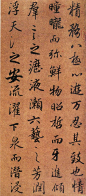 精騖八極心遊万仞其致也情
曈曨而弥鮮物昭晰而互進傾
羣言之瀝液漱六藝之芳潤
浮天淵以安流濯下泉而潛浸